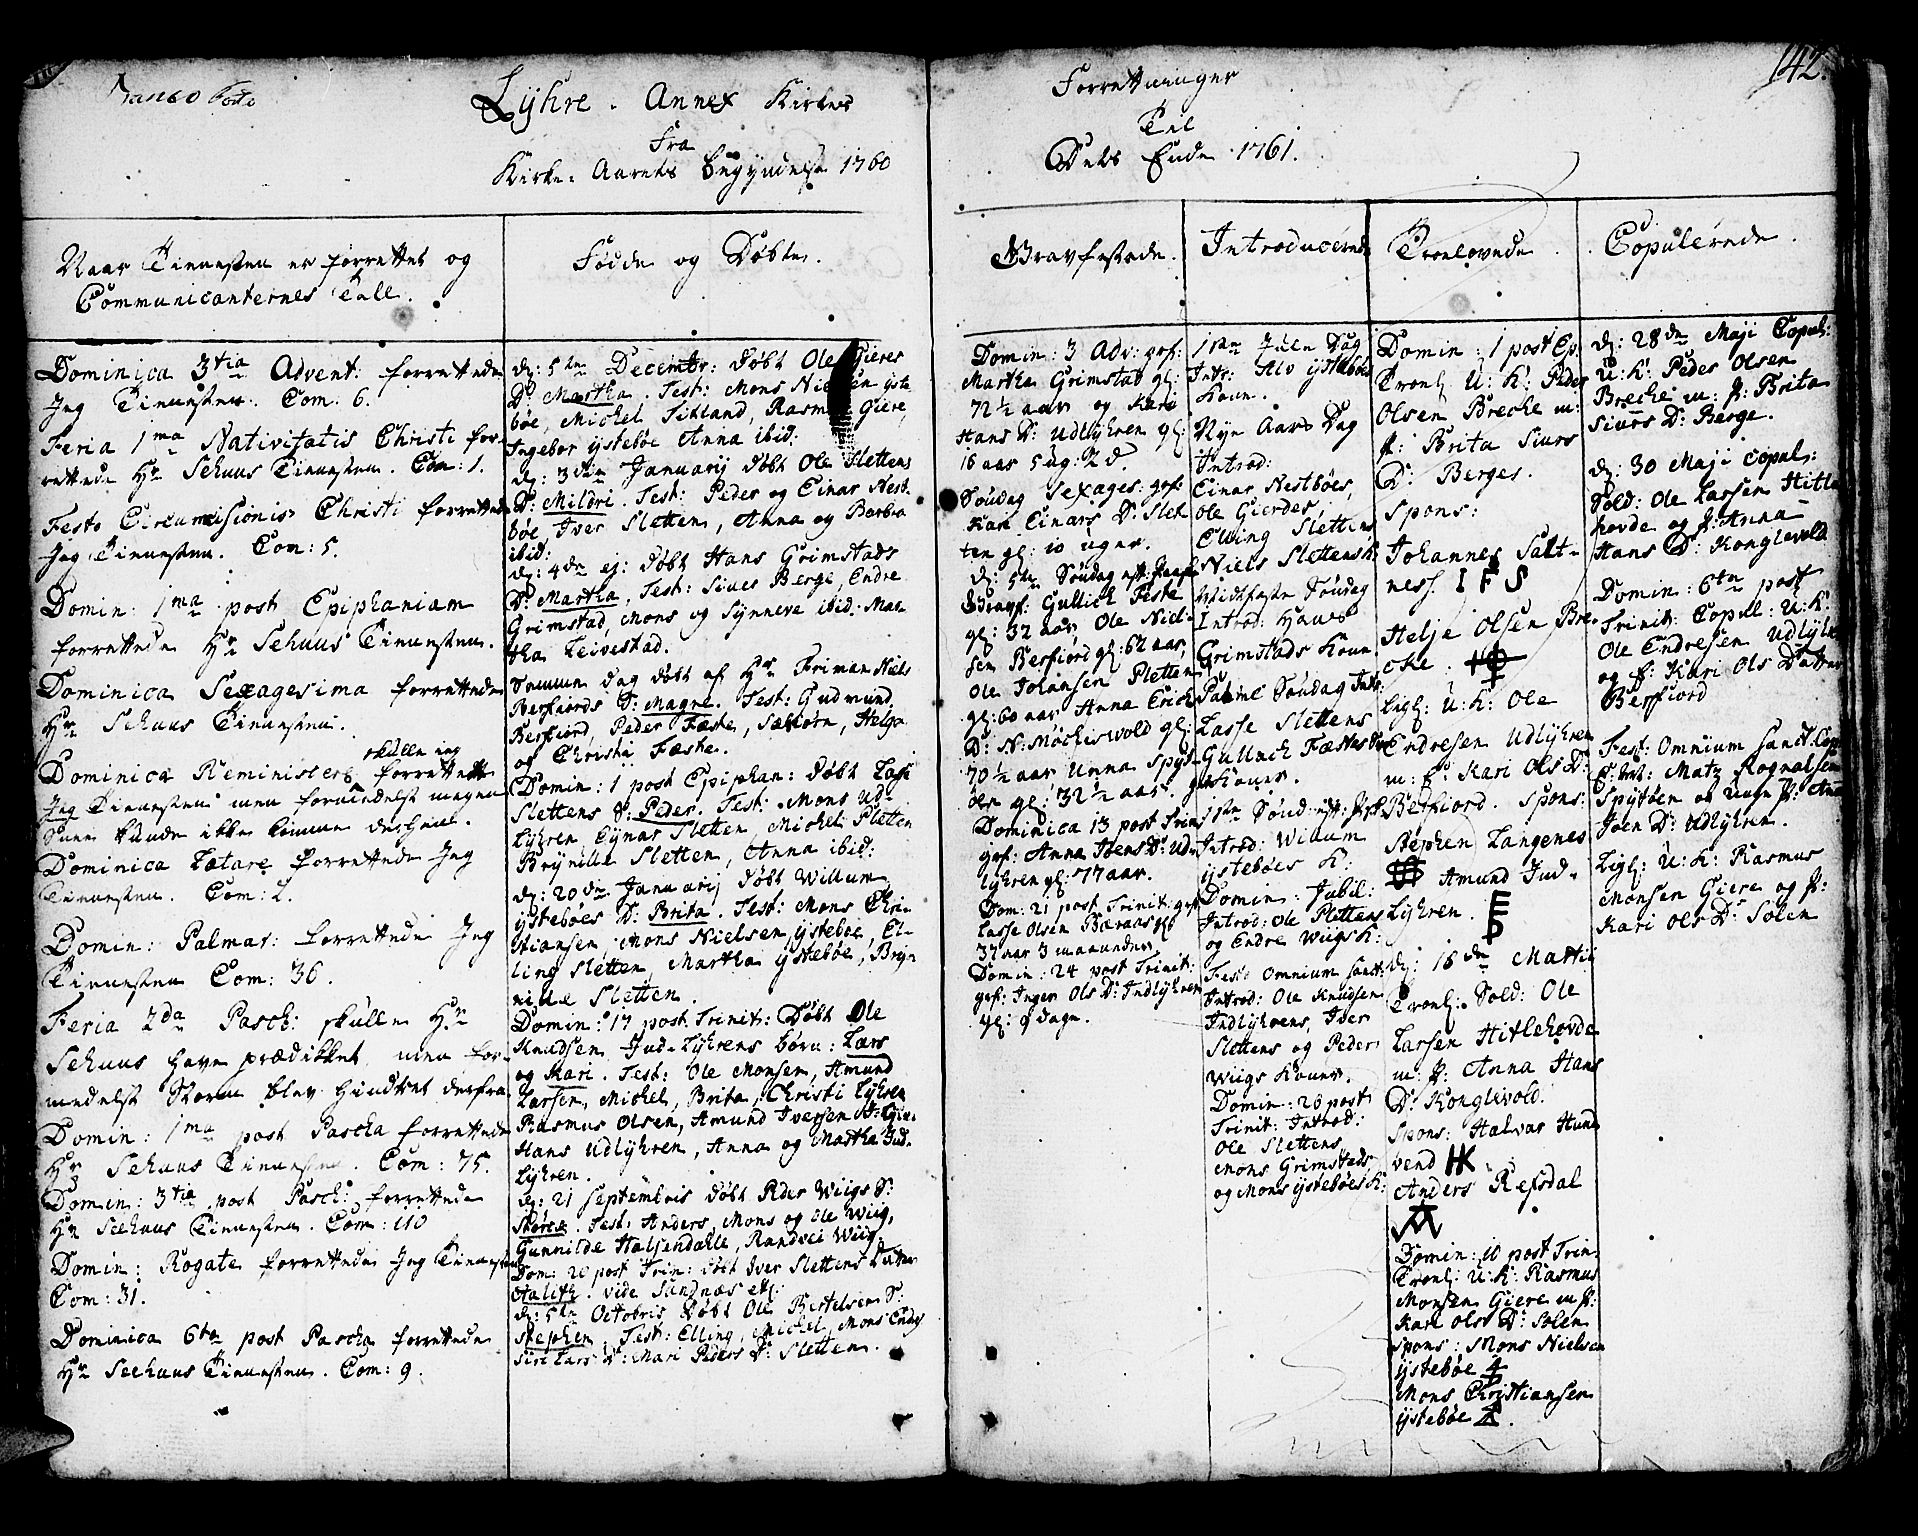 Lyhre. Annex Kirkes
Fra
Kirke. Aarets Begyndelse 1760
Forretninger
Til
Dets Ende 1761.
142.
Naar Tienesten er forrettet og
Communicanternes Tall.
Dominica 3tia Advent: forrettede
Jeg Tienesten. Com: 6.
Feria 1ma Nativitatis Christi for-
rettede Hr Sehuus Tienesten. Com: 1.
Festo Circumcisionis Christi forrettede
Jeg Tienesten. Com: 5.
Domin: 1ma post Epiphaniam
forrettede Hr Sehuus Tienesten.
Dominica Sexagesima forrettede
Hr Sehuus Tienesten.
skulle jeg
Dominica Reminiscere forrettet
Jeg Tienesten men formedelst megen
Snee kunde ikke komme derhen.
Dominica Lætare forrettede Jeg
Tienesten. Com: 2.
Domin: Palmar: forrettede Jeg
Tienesten Com: 36.
Feria 2da Pasch: skulle Hr
Sehuus have prædiket, men for-
medelst Storm blev hindret derfra
Domin: 1ma post Pascha forrettede
Hr Sehuus Tienesten. Com: 75.
Domin: 3tia post Pasch: forrettede
Hr Seehuus Tienesten. Com: 110
Domin: Rogate forrettede Jeg Tienesten
Com: 31.
Dominica 6ta post Pascha forrettede
Hr Seehuus Tienesten. Com: 9.
Fødde og Døbte.
d: 5te Decembr: døbt Ole Gieres
D: Martha. Test: Mons Nielsen yste
bøe, Michel Titland, Rasmus Giere,
Ingebor ystebøe Anna ibid:
d: 3die Januarij døbt Ole Slettens
D: Mildri. Test: Peder og Einar Nest-
bøe, Iver Sletten, Anna og Barbra
ibid:
d: 4de ej: døbt Hans Grimstads
D: Martha, Test: Siver Berge, Endre
Grimstad, Mons og Synneve ibid. Mar-
tha Leivestad.
Samme dag døbt af Hr Friman Niels
Berfiords S: Magne. Test: Gudmund
Berfiord, Peder Fæste, Sæbiorn, Helga
og Christi Fæste.
Domin: 1 post Epiphan: døbt Lasse
Slettens S: Peder. Test: Mons Ud-
lyhren, Eynar Sletten, Michel Sletten
Brynille Sletten, Anna ibid:
d: 20de Januarij døbt Willum
ystebøes D: Brita. Test: Mons Chri-
stiansen, Mons Nielsen ystebøe, El-
ling Sletten, Martha ystebøe, Bry-
nille Sletten.
Domin: 17 post Trinit: Døbt Ole
Knudsen Ind-Lyhrens børn: Lars
og Kari. Test: Ole Monsen, Amund
Larsen, Michel, Brita, Christi Lyhren
Rasmus Olsen, Amund Iversen
Hans Udlyhren, Anna og Martha Ind-
lyhren.
d: 21 Septembris døbt Peder Wiigs S:
Test: Anders, Mons og Ole Wiig,
Gunnilde Halsendalle, Randvei Wiig.
Dom: 20 post Trin: døbt Iver Slettens Datter
vide Sandnæs etc:
d: 5te Octobris Døbt Ole Bertelsens S:
Stephen, Test: Elling, Michel, Mons
Lars D: Mari Peders D: Sletten.
Gravfestede.
Domin: 3 Adv: gef:
Martha Grimstad gl:
72 1/2 aar og Kari
Hans D: Udlyhren gl:
16 aar 5 ug: 2 d.
Søndag Sexages: gef:
Kari Einars D: Slet
ten gl: 10 uger.
d: 5te Søndag eft: Paask
Gravf: Gullich Feste
gl: 32 aar, Ole Niel-
sen Berfiord gl: 62 aar,
Ole Johansen Sletten
gl: 60 aar Anna Erich
D: N: Møchiswold gl:
70 1/2 aar Unna Spyd-
øen gl: 32 1/2 aar.
Dominica 13 post Trin:
gef: Anna Joens D: Ud-
lyhren gl: 77 aar.
Dom: 21 post Trinit: gef:
Lasse Olsen Bæraas gl:
37 aar 3 maaneder.
Domin: 24 post Trinit:
gef: Inger Ols D: Indlyhren
gl: 9 dage.
Introducerede
1ste Jule Dag
Intr: ystebøes
Kone.
Nyn Aars Dag
Introd:
Einar Nestbøes,
Ole Gierdes,
Elling Slettens
Niels Slettens K:
Midfaste Søndag
Introd: Hans
Grimstads Kone
Palme Søndag Intr:
Lasse Slettens
Gullach Fæstes
Koner.
1ste Sønd: eft: Pask
Introd: Willum
ystebøes K:
Domin: Jubil:
Introd: Ole Slettens
og Endre Wiigs K:
Fest Omnium Sanct:
Introd: Ole Knudsen
Indlyhrens, Iver
Slettens og Peder
Wiigs Koner.
Domin: 26 post
Trinit: Introd:
Ole Slettens
Mons Grimstads
og Mons ystebøes K:
Troelovede.
Domin: 1 post Ep.
Troel: U: K: Peder
Olsen Breche m:
P: Brita Siurs
D: Berges.
Spons:
Johannes Salt-
ness. I F S
Helje Olsen Bre-
che.
Ligl: U: K: Ole
Endresen Udlyhren
m: P: Kari Ols D:
Berfiord. Spons:
Stephen Langenes
Amund Ind-
Lyhren.
d: 16de Martii
Troel: Sold: Ole
Larsen Hitlehovde
m: P: Anna Hans
D: Konglevold.
Spons: Halvar Hund
vend HK
Anders Refsdal
Domin: 10 post Trin:
Troel: U: K: Rasmus
Monsen Giere m P:
Kari Ols D: Solen
Spons: Mons Nielsen
ystebøe
Mons Christiansen
ystebøe
Copulerede.
d: 28de Maji Copul:
U: K: Peder Olsen
Breche m: P: Brita
Siurs D: Berge.
d: 30 Maji Copul:
Sold: Ole Larsen Hitle
hovde og P: Anna
Hans D: Konglevold
Domin: 6te post
Trinit: Copul: U: K:
Ole Endresen Udlyhr
og P: Kari Ols Datter
Berfiord
Fest: Omnium Sanct. Cop
Matz Rognalsen
Spytøen og Unge P:
Joen D: Udlyhren.
Ligl: U: K: Rasmus
Monsen Giere og P:
Kari Ols D: Solen